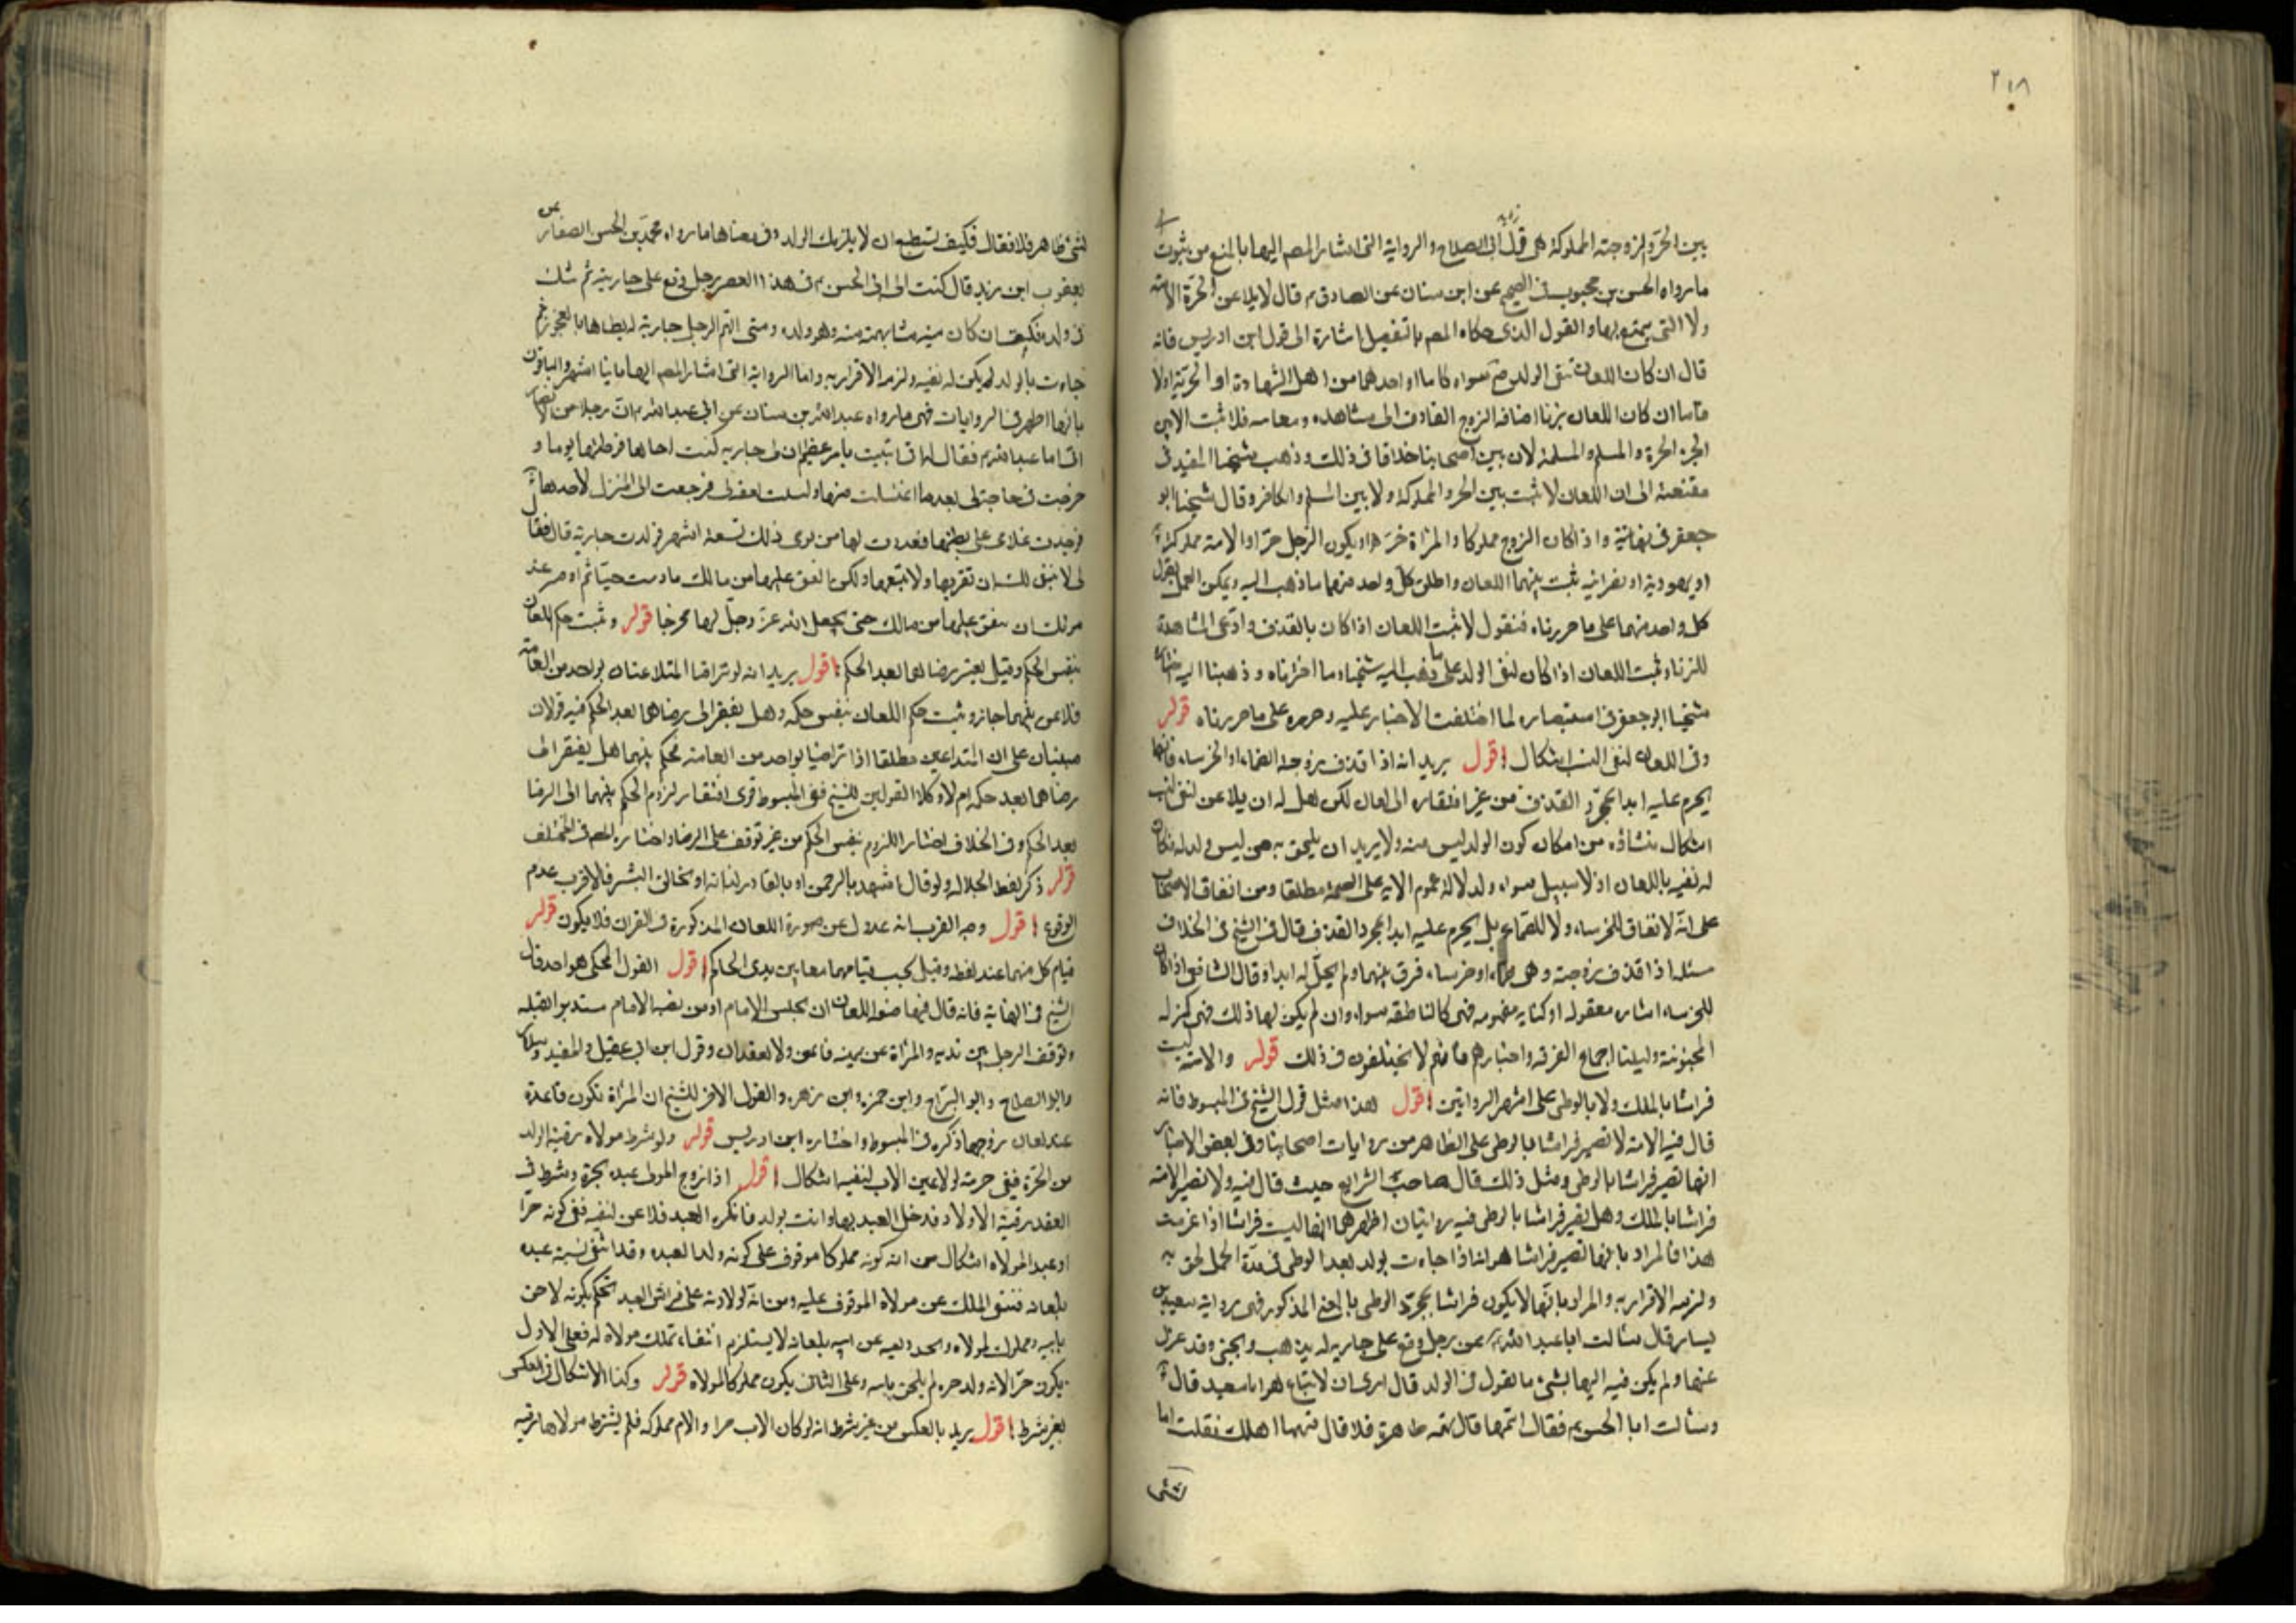 ٢١٨
بين الحر ولزوجته المملوكة هل قول ابى الصلاح والرواية التى اشار المصم اليها بالمنع من ثبوت
ما رواه الحسن بن محبوب فى الصحيح عن ابن سنان عن الصادق م قال لا يلاعن الحرة الامة
ولا التى يتمتع بها والقول الذى حكاه المصم بالتفصيل اشارة الى قول ابن ادريس فانه
قال ان كان اللعان بنفى الولد صح سواء كاما او احدهما من اهل الشهادة او الحرية اولا
فاما ان كان اللعان بزنا اضافه الزوج القاذف الى مشاهده ومعاسه فلا ثبت الا بين
الحر الحرة والمسلم والمسلمة لان بين اصحابنا خلافا فى ذلك وذهب شيخنا المفيد فى
مقنعته الى ان اللعان لا ثبت بين الحر والمملوكة ولا بين المسلم والكافر وقال شيخنا ابو
جعفر فى نهايته واذا كان الزوج مملوكا والمرأة حرة او يكون الرجل حرا والامة مملوكة
او يهودية او نصرانية ثبت بينهما اللعان واطلق كل واحد منهما ما ذهب اليه ويمكن العمل بقول
كل واحد منهما على ما حررناه فنقول لا ثبت اللعان اذا كان بالقذف وادعى المشاهدة
للزنا وثبت اللعان اذا كان لنفى الولد على ما ذهب اليه شيخنا وما اخترناه وذهبنا اليه
شيخنا ابو جعفر فى استبصاره لما اختلفت الاخبار عليه وحرره على ما حررناه قوله
وفى اللعان لنفى النسب اشكال اقول يريد انه اذا قذف زوجته الصماء او الخرساء فانها
يحرم عليه ابدا بمجرد القذف من غير افتقاره الى لعان لكن هل له ان يلاعن لنفى النسب
اشكال ينشاؤه من امكان كون الولد ليس منه ولا يريد ان يلحق به من ليس ولد له فكان
له نفيه باللعان اذ لا سبيل سواه ولدلالة عموم الايه على الصحة مطلقا ومن اتفاق الاصحاب
على انه لا لعان للخرساء ولا للصماء بل يحرم عليه ابدا بمجرد القذف قال فى الشيخ فى الخلاف
مسئله اذا قذف زوجته وهى صماء او خرساء فرق بينهما ولم يحل له ابدا وقال الشافعى اذا كان
للخرساء اشاره معقوله او كنايه مفهومه فهى كالناطقه سواء وان لم يكن لها ذلك فهى كمنزله
المجنونة دليلنا اجماع الفرقه واخبارهم فانهم لا يختلفون فى ذلك قوله والامة ليست
فراشا بالملك ولا بالوطى على اشهر الروايتين اقول هذا مثل قول الشيخ فى المبسوط فانه
قال فيه الامة لا تصير فراشا بالوطى على الظاهر من روايات اصحابنا وفى بعض الاخبار
انها تصير فراشا بالوطى ومثل ذلك قال صاحب الشرايع حيث قال فيه ولا تصير الامة
فراشا بالملك وهل تصير فراشا بالوطى فيه روايتان اظهرهما انها ليست فراشا اذا عرفت
هذا فالمراد بانها تصير فراشا هو انه اذا جاءت بولد بعد الوطى فى مدة الحمل لحق به
ولزمه الاقرار به والمراد بانها لا يكون فراشا بمجرد الوطى بالمعنى المذكور فهى رواية سعيد بن
يسار قال سالت ابا عبد الله م عن رجل وقع على جاريه له يذهب ويجئ وقد عزل
عنها ولم يكن فيه اليها بشئ ما تقول فى الولد قال ارى ان لا يباع هذا يا سعيد قال
وسالت ابا الحسن م فقال اتتهمها قال تهمة ظاهرة فلا قال يتهمها اهلك فقلت اما
لشئ
لشئ ظاهر فلا فقال فكيف تستطيع ان لا يلزمك الولد وفى معناها ما رواه محمد بن الحسن الصفار عن
يعقوب ابن يزيد قال كتبت الى ابى الحسن م فى هذا العصر رجل وقع على جاريته ثم شك
فى ولده فكتب ان كان فيه مشابهة منه وهو ولده ومتى اتهم الرجل جارية له يطاها بالفجور ثم
جاءت بالولد لم يكن له نفيه ولزمه الاقرار به واما الرواية التى اشار المصم اليها
بانها اظهر فى الروايات فهى ما رواه عبد الله بن سنان عن ابى عبد الله م ان رجلا من الانصار
اتى ابا عبد الله م فقال انى ابتليت بامر عظيم ان لى جاريه كنت اطاها فوطئتها يوما و
خرجت فى حاجة لى بعد ما اغتسلت منها ونسيت نفقة لى فرجعت الى المنزل لاخذها
فوجدت غلامى على بطنها فعددت لها من يومى ذلك تسعة اشهر فولدت جارية قال فقال
لى لا ينبغى لك ان تقربها ولا تبيعها ولكن انفق عليها من مالك ما دمت حيا ثم اوص عند
موتك ان ينفق عليها من مالك حتى يجعل الله عز وجل لها مخرجا قوله وثبت حكم اللعان
بنفس الحكم وقيل يعتبر رضاهما بعد الحكم اقول يريد انه لو تراضا المتلاعنان بواحد من العامة
فلاعن بينهما جاز وثبت حكم اللعان بنفس حكمه وهل يفتقر الى رضاهما بعد الحكم فيه قولان
مبنيان على ان المتداعيين مطلقا اذا تراضيا بواحد من العامة يحكم بينهما هل يفتقر الى
رضاهما بعد حكمه ام لا وكلا القولين للشيخ ففى المبسوط قوى افتقار لزوم الحكم بينهما الى الرضا
بعد الحكم وفى الخلاف اختار اللزوم بنفس الحكم من غير توقف على الرضا واختاره المصم فى المختلف
قوله ذكر لفظ الجلاله ولو قال اشهد بالرحمن او بالقادر لذاته او بخالق البشر فالاقرب عدم
الوقوع اقول وجه القرب انه عدول عن صورة اللعان المذكورة فى القران فلا يكون قوله
قيام كل منهما عند لفظه وقيل يجب قيامهما معا بين يدى الحاكم اقول القول المحكى هو احد قولى
الشيخ فى النهاية فانه قال فيها صفة اللعان ان يجلس الامام او من نصبه الامام مستدبر القبله
ويوقف الرجل بين يديه والمرأة عن يمينه قائمين ولا يقعدان وقول ابن ابى عقيل والمفيد وسلار
وابو الصلاح وابو البراج وابن حمزه وابن زهره والقول الاخر للشيخ ان المرأة تكون قاعدة
عند لعان زوجها ذكره فى المبسوط واختاره ابن ادريس قوله ولو شرط مولاه رقية الولد
من الحرة ففى حريته لو لاعن الاب لنفيه اشكال اقول اذا زوج المولى عبده بحرة وشرط فى
العقد رقية الاولاد فدخل العبد بها واتت بولد فانكره العبد فلاعن لنفيه ففى كونه حرا
او عبدا لمولاه اشكال من انه كونه مملوكا موقوف على كونه ولدا لعبده وقد انتفى نسبة عبده
بلعانه فينتفى الملك عن مولاه الموقوف عليه ومن انه لولادته على فراش العبد تحكم بكونه لاحق
بابيه ومملوك لمولاه واحد ونفيه عن ابيه بلعانه لا يستلزم انتفاء تملك مولاه له فعلى الاول
يكون حرا لانه ولد حره لم يلحق بابيه وعلى الثانى يكون مملوكا لمولاه قوله وكذا الاشكال فى العكس
بغير شرط اقول يريد بالعكس من غير شرط انه لو كان الاب حرا والام مملوكه فلم يشترط مولاها رقيه